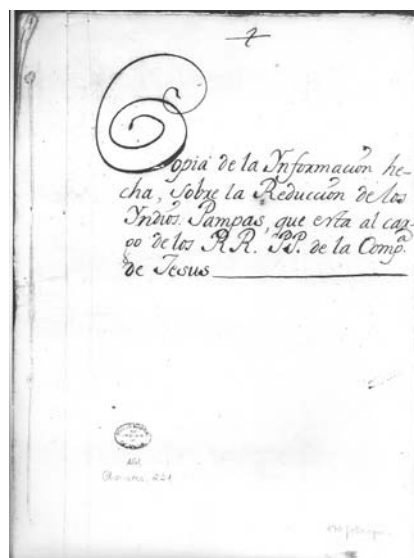 Copia de la Informacion he-
cha, sobre la Reduccion de los
Yndios Pampas, que esta al car-
go de los RR. PP. de la Comp.ª
de Jesus